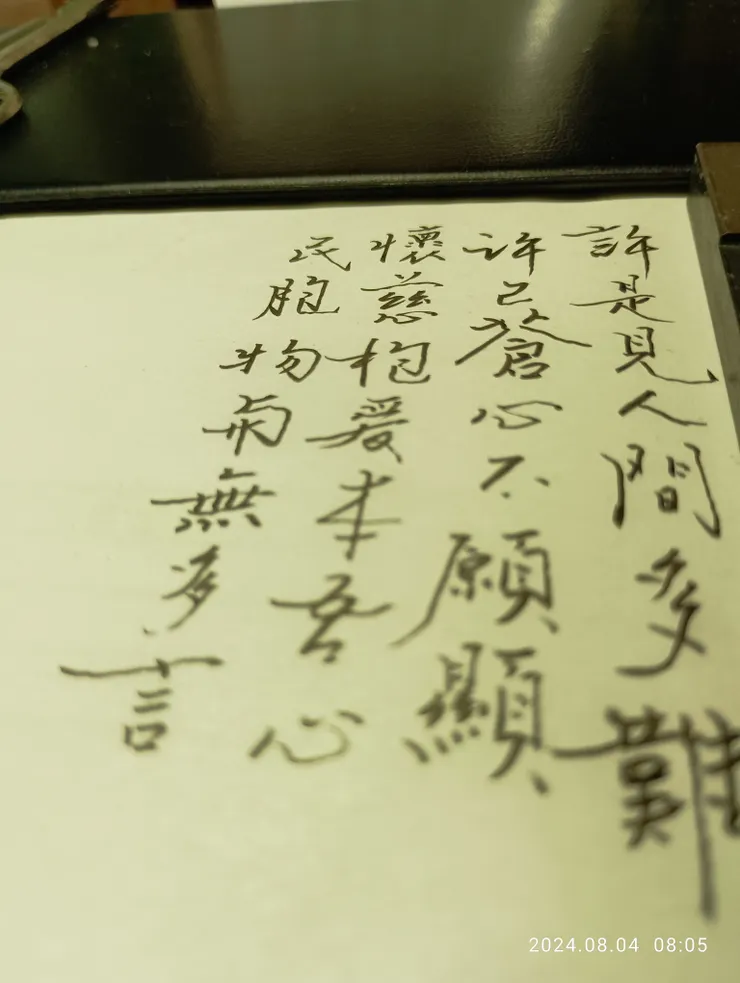 許是見人間多難
許已蒼心不願顯
懷慈抱愛本吾心
民胞物與無多言
2024.08.04 08:05